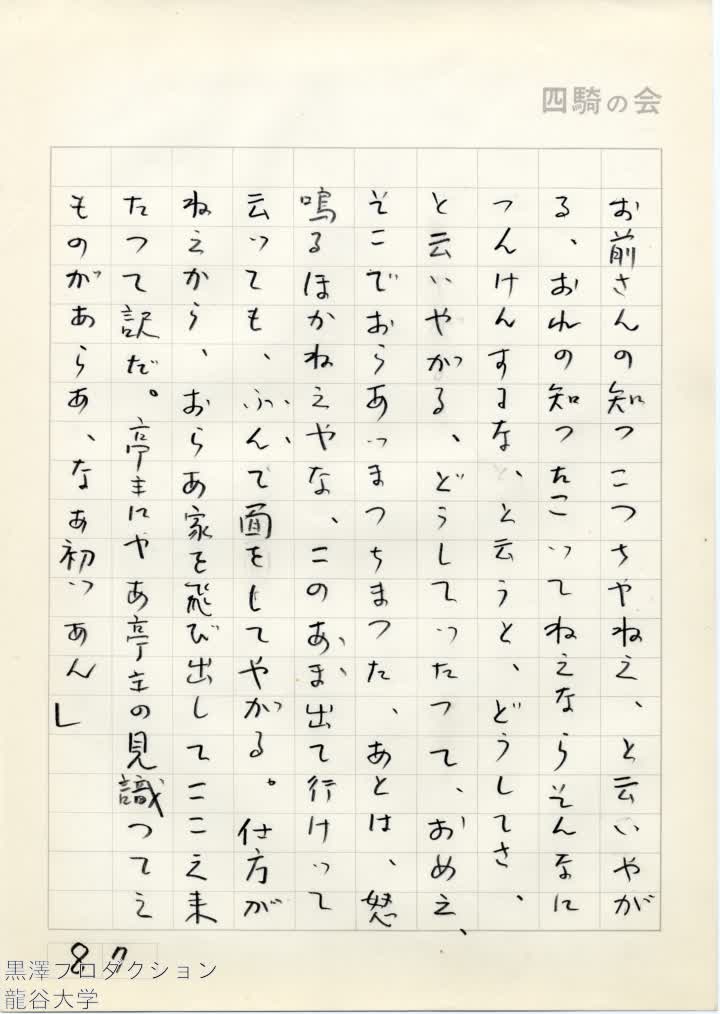 四騎の会
お前さんの知つこつちやねえ、と云いやが
る、おれの知つたこつてねえならそんなに
つんけんするな、と云うと、どうしてさ、
と云いやがる、どうしてつたつて、おめえ、
そこでおらあつまつちまつた、あとは、怒
鳴るほかねえやな、このあま出て行けつて
云つても、ふんて面をしてやがる。仕方が
ねえから、おらあ家を飛び出してここえ来
たつて訳だ。亭主にやあ亭主の見識つてえ
ものがあらあ、なあ初つあん」
87
黒澤プロダクション
龍谷大学